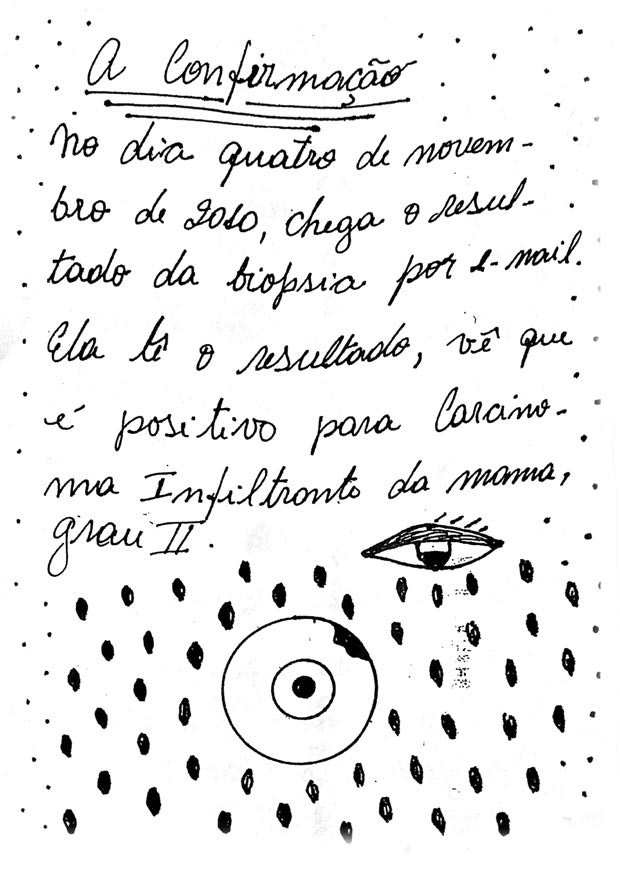 A Confirmação
No dia quatro de novem-
bro de 2010, chega o resul-
tado da biopsia por e-mail.
Ela lê o resultado, vê que
é positivo para Carcino-
ma Infiltrante da mama,
grau II.